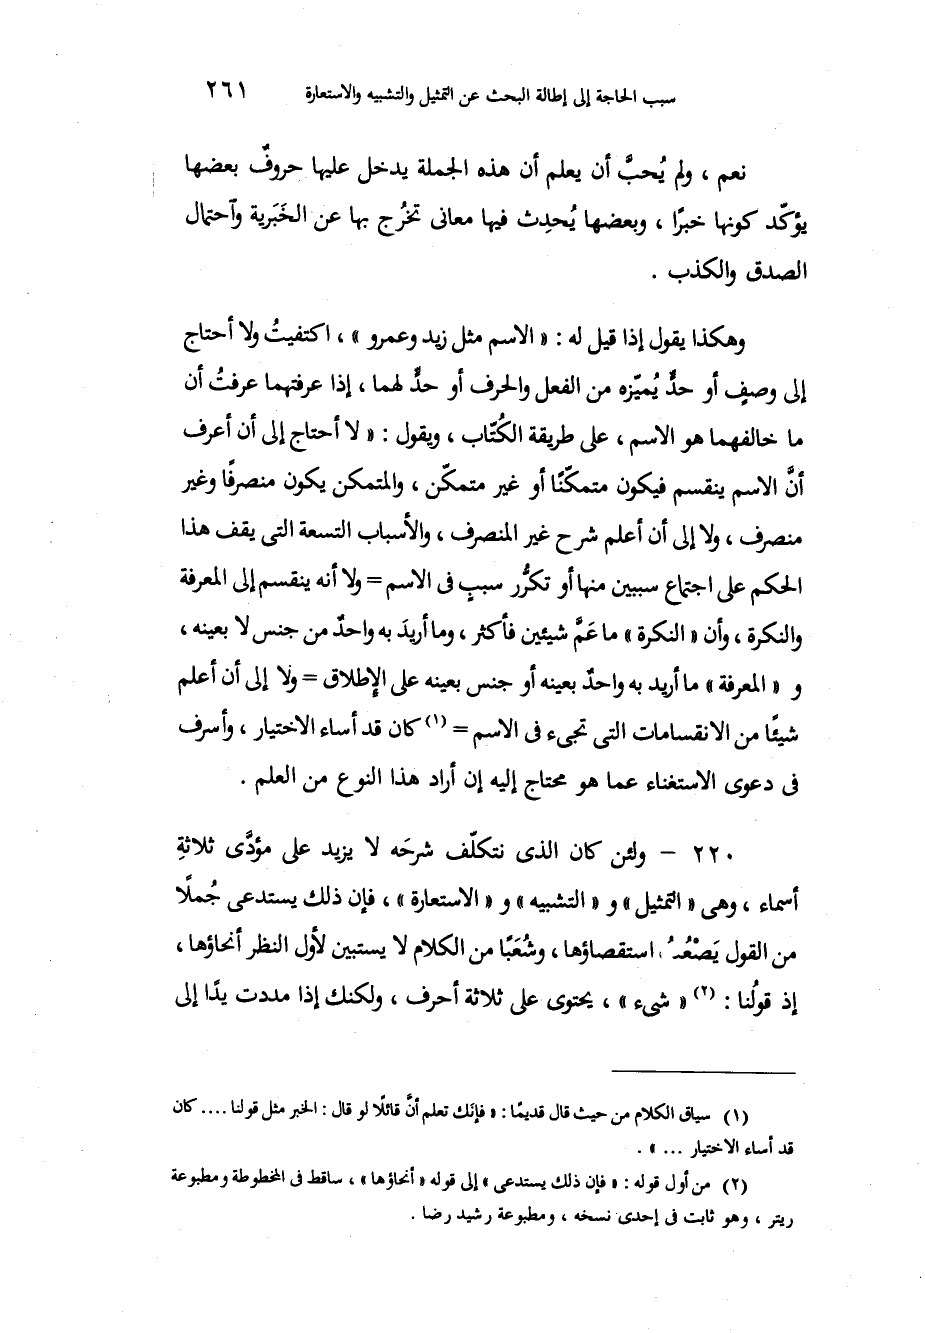 سبب الحاجة إلى إطالة البحث عن التمثيل والتشبيه والاستعارة ٢٦١
نعم ، ولم يُحبَّ أن يعلم أن هذه الجملة يدخل عليها حروفٌ بعضها
يؤكّد كونها خبرًا ، وبعضها يُحدِث فيها معانى تخرُج بها عن الخَبَرية وآحتمال
الصدق والكذب .
وهكذا يقول إذا قيل له : « الاسم مثل زيد وعمرو » ، اكتفيتُ ولا أحتاج
إلى وصفٍ أو حدٍّ يُميّزه من الفعل والحرف أو حدٍّ لهما ، إذا عرفتهما عرفتُ أن
ما خالفهما هو الاسم ، على طريقة الكُتّاب ، ويقول : « لا أحتاج إلى أن أعرف
أنَّ الاسم ينقسم فيكون متمكّنًا أو غير متمكّن ، والمتمكن يكون منصرفًا وغير
منصرف ، ولا إلى أن أعلم شرح غير المنصرف ، والأسباب التسعة التى يقف هذا
الحكم على اجتماع سببين منها أو تكرُّر سببٍ فى الاسم = ولا أنه ينقسم إلى المعرفة
والنكرة ، وأن « النكرة » ما عَمَّ شيئين فأكثر ، وما أريدَ به واحدٌ من جنس لا بعينه ،
و « المعرفة » ما أريد به واحدٌ بعينه أو جنس بعينه على الإِطلاق = ولا إلى أن أعلم
شيئًا من الانقسامات التى تجىء فى الاسم = (١) كان قد أساء الاختيار ، وأسرف
فى دعوى الاستغناء عما هو محتاج إليه إن أراد هذا النوع من العلم .
٢٢٠ – ولئن كان الذى نتكلّف شرحَه لا يزيد على مؤدَّى ثلاثةِ
أسماء ، وهى « التمثيل » و « التشبيه » و « الاستعارة » ، فإن ذلك يستدعى جُملًا
من القول يَصْعُبُ استقصاؤها ، وشُعَبًا من الكلام لا يستبين لأول النظر أنحاؤها ،
إذ قولُنا : (٢) « شىء » ، يحتوى على ثلاثة أحرف ، ولكنك إذا مددت يدًا إلى
(١) سياق الكلام من حيث قال قديمًا : « فإنك تعلم أنَّ قائلًا لو قال : الخبر مثل قولنا .... كان
قد أساء الاختيار ... » .
(٢) من أول قوله : « فإن ذلك يستدعى » إلى قوله « أنحاؤها » ، ساقط فى المخطوطة ومطبوعة
ريتر ، وهو ثابت فى إحدى نسخه ، ومطبوعة رشيد رضا .